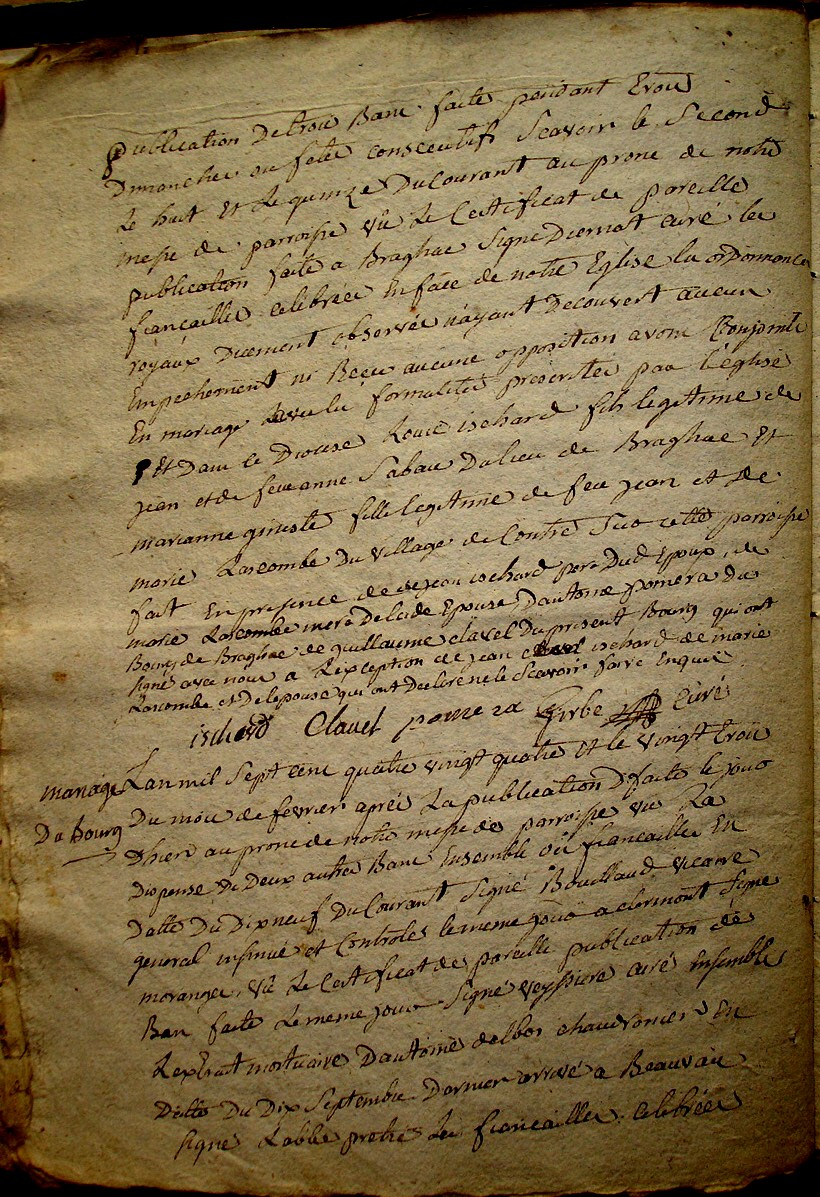 publication De trois Banc faite pendant trois
Dimanches ou fetes consecutifs Scavoir le Second
Le huit Et Le quinze Du Courant au prone de notre
messe de parroisse vû Le Certificat de pareille
publication faite a Braghac Signé curé les
fiançailles celebrées En face de notre Eglise les ordonnances
royaux Duement observés n'ayant Decouvert aucun
Empechement ni Recu aucune opposition avons Conjoints
En mariage les formalités prescrites par l'église
Et Dans ce Diocese Louis ischard fils legitime de
jean et de feue anne Sabau Du lieu de Braghac Et
marianne gineste fille legitime de feu jean et De
marie Lascombe Du village de Contre Sur cette parroisse
fait En presence de jean ischard pere Dud Epoux, de
marie Lascombe mere De lade Epouse D'antoine pomera du
Bourg de Braghac de guillaume clavel Du present Bourg qui ont
signé avec nous a L'exception de jean ischard de marie
Lascombe et De l'epouse qui ont declaré ne le Scavoir faire Enquis
ischard Clavel pomera Girbe Curé
mariage L'an mil Sept cens quatre vingt quatre Et le vingt trois
Du bourg Du mois de fevrier aprés La publication Dᵗ faite le jour
D'hiere au prone de notre messe de parroisse vu La
Dispense De Deux autres Banc Ensemble des fiançailles En
Datte Du Dixneuf Du Courant Signé Bouillaud vicaire
general insinué et Controlé le meme jour a clermont Signé
moranges, vû Le Certificat de pareille publication de
Ban faite Le meme jour Signé veyssiere curé Ensemble
L'extrait mortuaire D'antoine delbos chaudronier En
Datte Du Dix Septembre Dernier arrivé a Beauvais
signé L'abbé pretre Les fiançailles celebrées